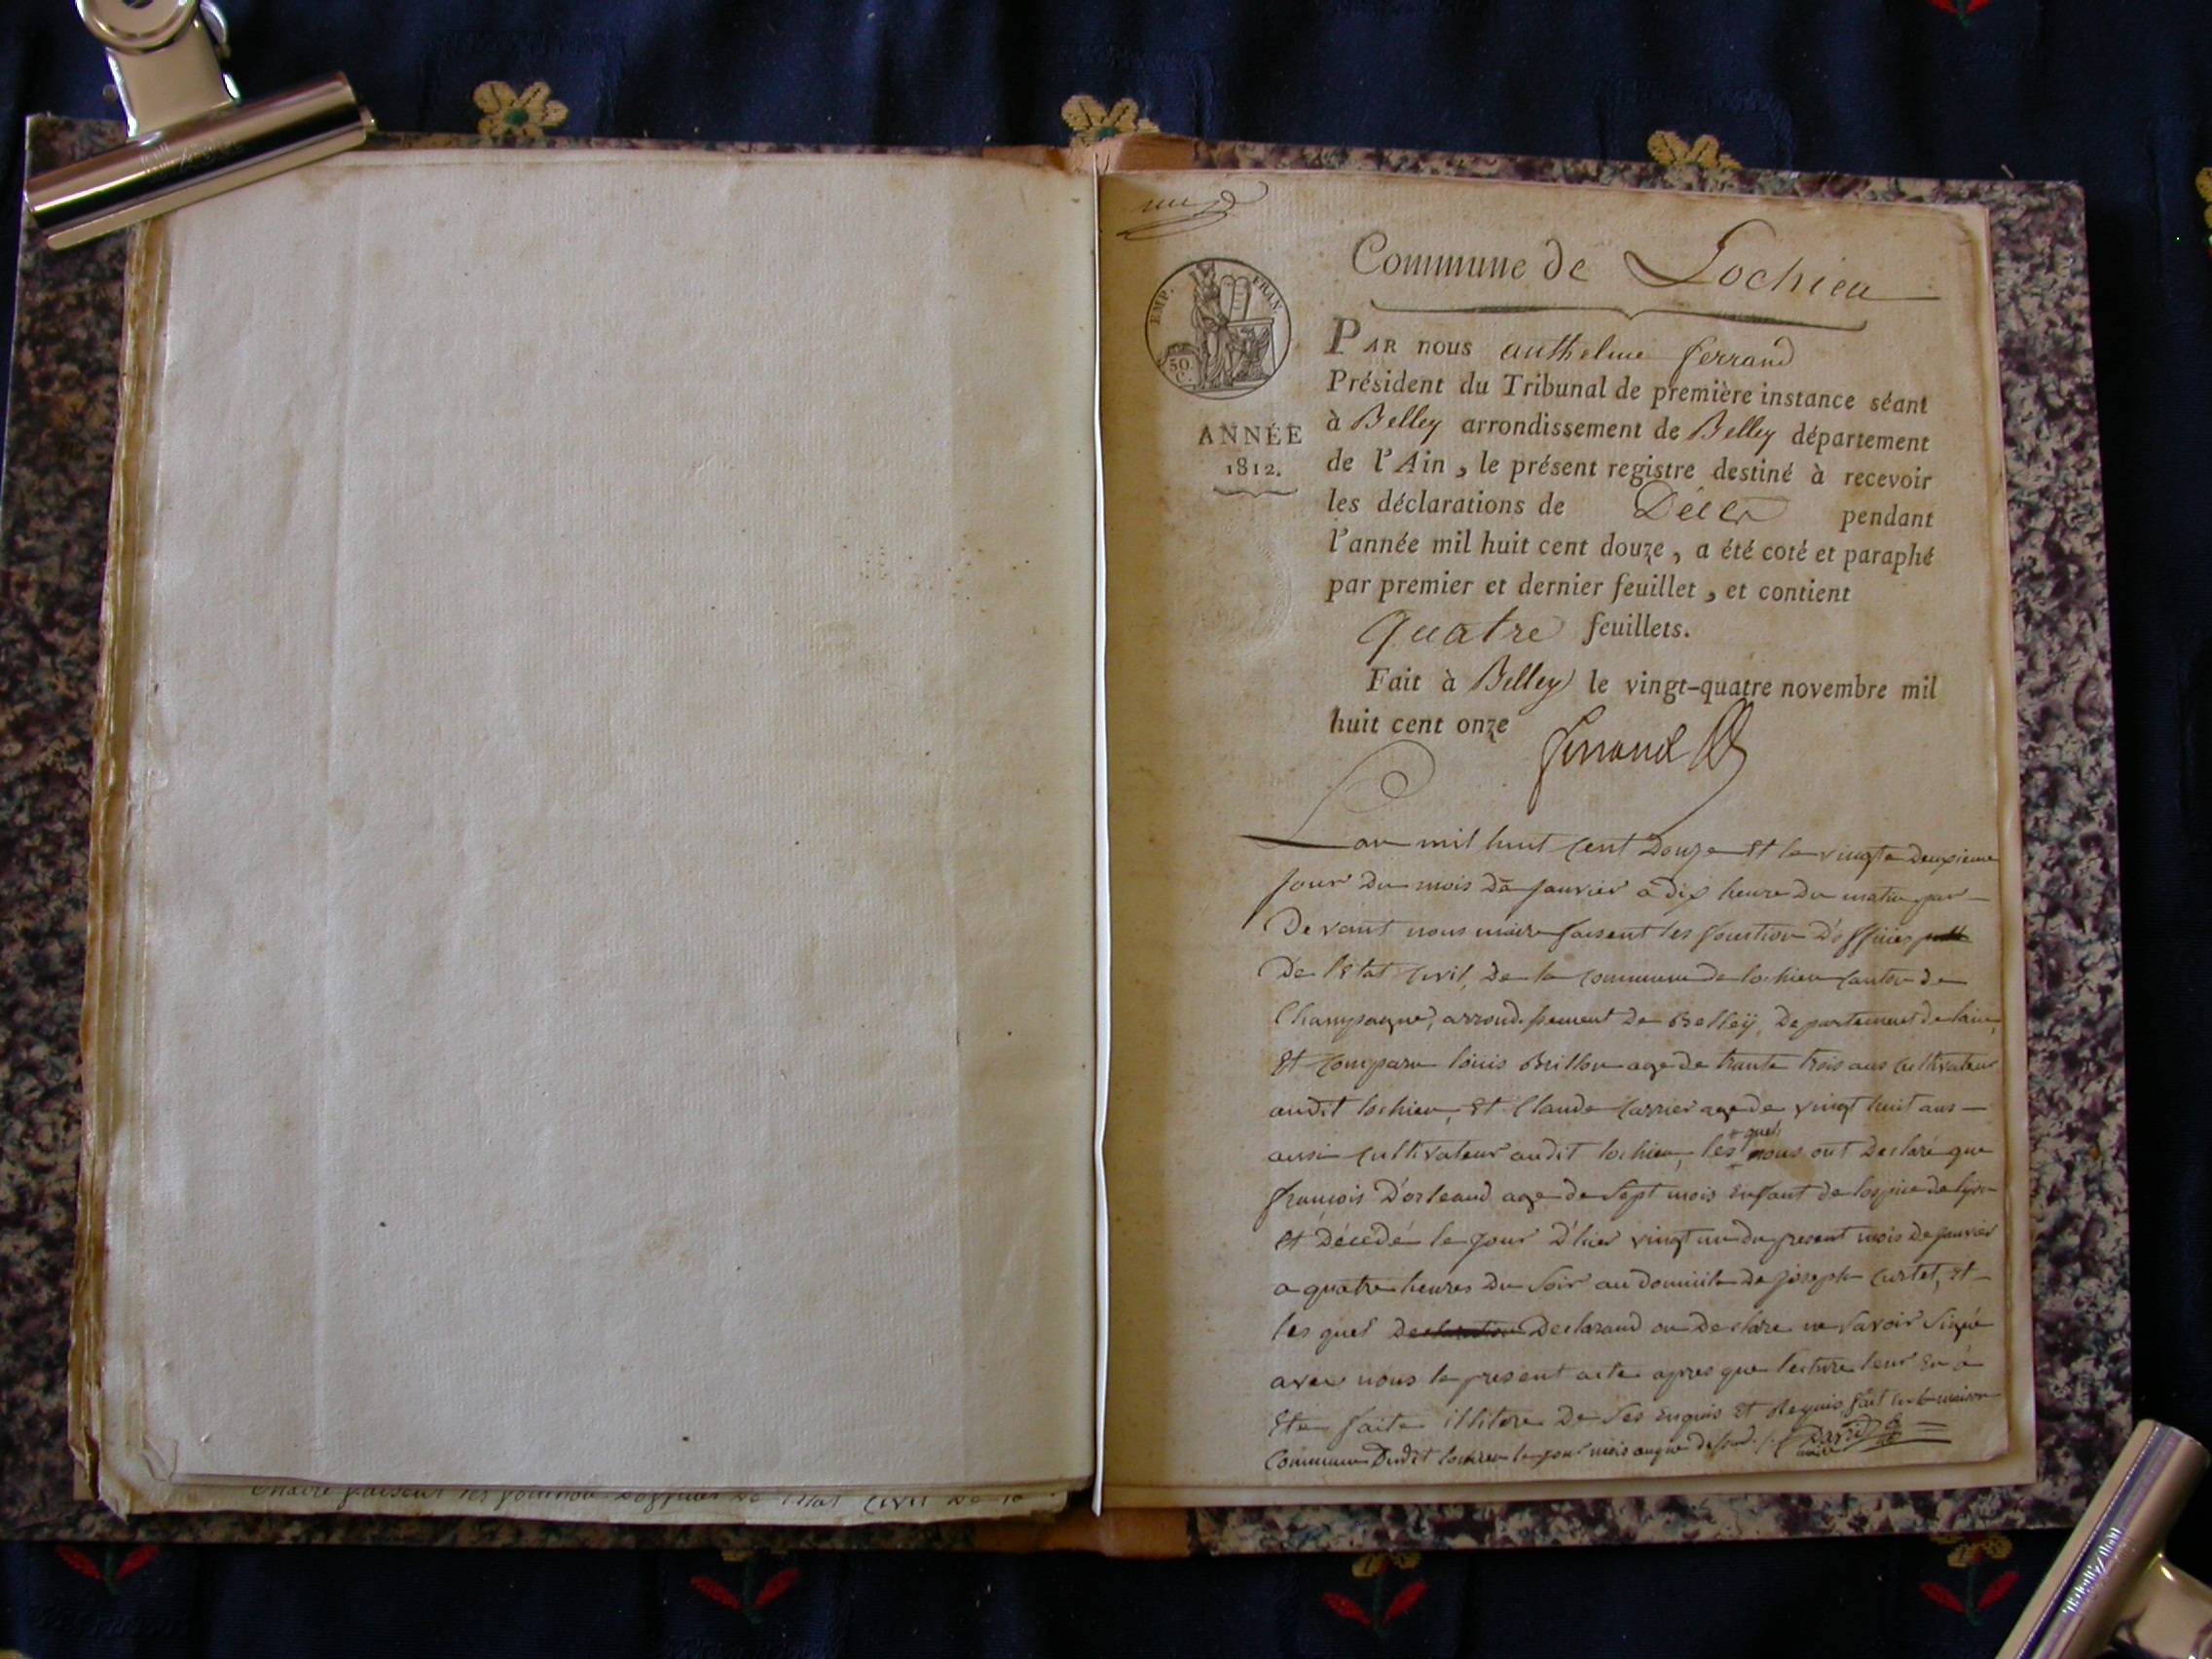 un
Commune de Lochieu
EMP. FRAN.
50. C.
PAR nous anthelme ferrand
Président du Tribunal de première instance séant
à Belley arrondissement de Belley département
ANNÉE
1812.
de l'Ain, le présent registre destiné à recevoir
les déclarations de Décès pendant
l'année mil huit cent douze, a été coté et paraphé
par premier et dernier feuillet, et contient
quatre feuillets.
Fait à Belley le vingt-quatre novembre mil
huit cent onze ferrand
L'an mil huit cent Douze et le vingte deuxieme
jour du mois de janvier a dix heure du matin par
Devant nous maire faisent les fonction d'officier
De l'Etat civil, De la commune de lochieu canton de
Champagne, arrondissement de Belleÿ, Departement de l'ain,
et comparu louis Brillon age de trante trois ans cultivateur
audit lochieu, et Claude Carrier age de vingt huit ans
aussi cultivateur audit lochieu, les quel nous ont Declaré que
françois D'orleand age de sept mois enfant de lospice de lyon
et décédé le jour d'hier vingt un du present mois de janvier
a quatre heures du soir au domicile de joseph Curtet, et
les quel Declaration Declarand on Declare ne savoir signé
avec nous le present acte apres que lecture leur en à
Eté faite de ses enquis et Requis fait en la maison
Commune Dudit lochieu le jour mois an que dessus. David maire
maire faisent les fonction d'officier de l'Etat Civil de la